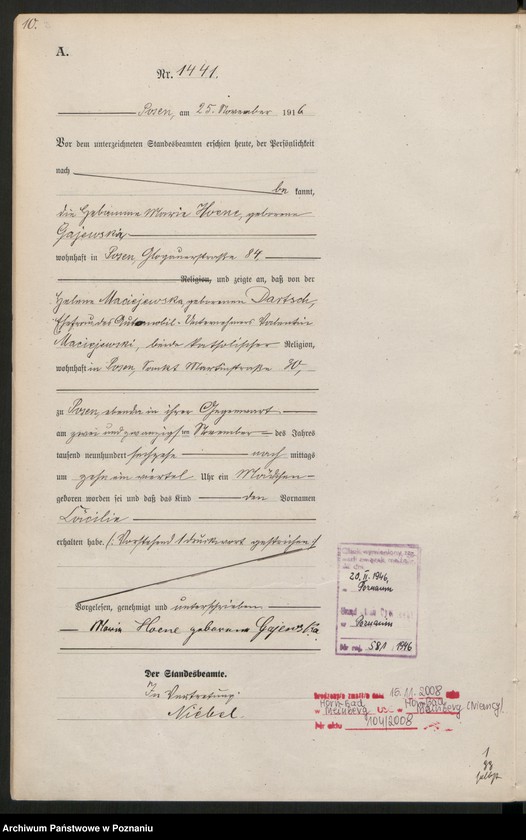 10.
A.
Nr. 1441.
Posen, am 25. November 1916
Vor dem unterzeichneten Standesbeamten erschien heute, der Persönlichkeit
nach
be kannt,
die Hebamme Marie Hoene, geborene
Gajewska
wohnhaft in Posen, Glogauerstraße 84,
Religion, und zeigte an, daß von der
Helene Maciejewska, geborenen Dartsch,
Ehefrau des Automobil-Unternehmers Valentin
Maciejewski, beide katholischer Religion,
wohnhaft in Posen, Sankt Martinstraße 30,
zu Posen, ebenda in ihrer Gegenwart
am zwei und zwanzigsten November des Jahres
tausend neunhundert sechzehn nach mittags
um zehn ein viertel Uhr ein Mädchen
geboren worden sei und daß das Kind den Vornamen
Cäcilie
erhalten habe. (: Vorstehend 1 Druckwort gestrichen :)
Vorgelesen, genehmigt und unterschrieben
Marie Hoene geborene Gajewska
Der Standesbeamte.
In Vertretung:
Niebel.
20. II. 1946,
w Poznaniu
w Poznaniu
Nr rej. 581, 1946
zmarła dnia 16.11.2008
Horn-Bad Horn-Bad
w Meinberg USC w Meinberg (Niemcy)
Nr aktu 104/2008
1
Archiwum Państwowe w Poznaniu